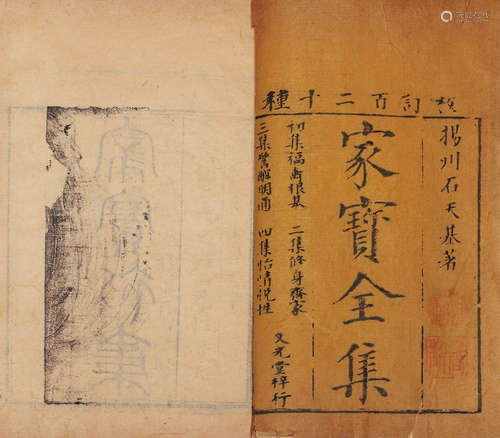 校訂百二十種
揚州石天基著
家寶全集
初集福壽根基　二集修身齊家
三集警解明通　四集怡情悅性
文光堂梓行